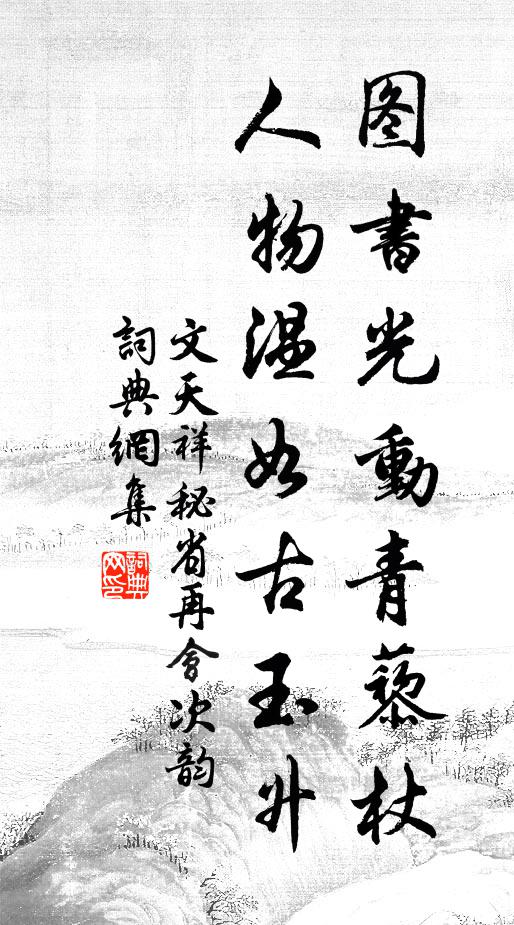 图書光動青藜杖
人物温如古玉升
文天祥秘省再會次韵
詞典網集
詞典
网印